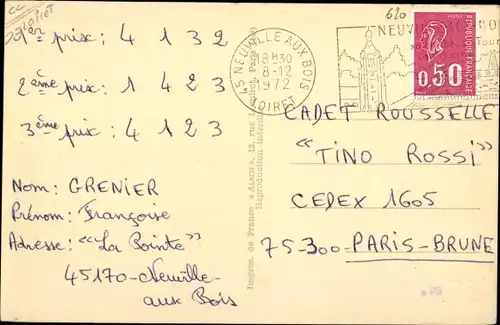 Loiret
1er prix : 4 1 3 2
2ème prix : 1 4 2 3
3ème prix : 4 1 2 3
Nom : GRENIER
Prénom : Françoise
Adresse : "La Pointe"
45170 - Neuville-
aux Bois
Impres. de France «ALSIN»
Reproduction
45 NEUVILLE AUX BOIS
18H30
8-12
1972
LOIRET
620
NEUVILLE
REPUBLIQUE FRANÇAISE
0,50
CADET ROUSSELLE
"TINO ROSSI"
CEDEX 1605
75-300-PARIS-BRUNE